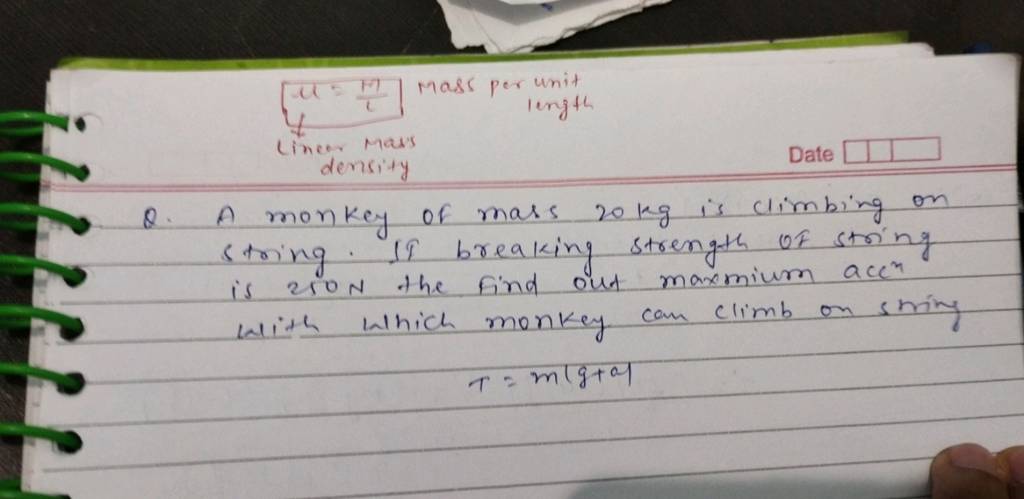 μ = M/L Mass per unit
length
Linear Mass
density
Date
Q. A monkey of mass 20 kg is climbing on
string. If breaking strength of string
is 250N the find out maxmium accn
with which monkey can climb on string
T = m(g+a)